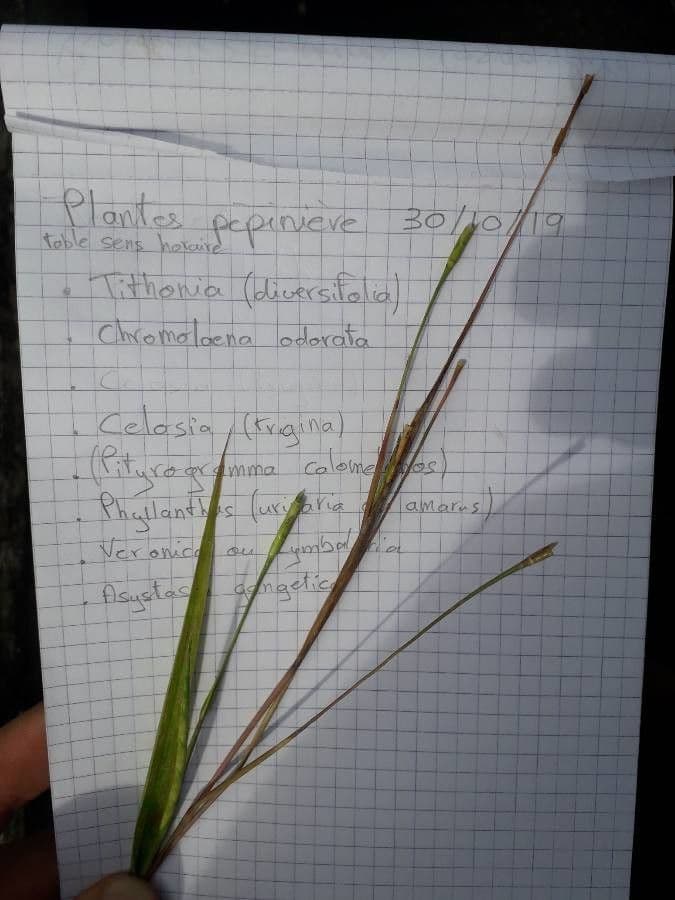 Plantes pépinière 30/10/19
table sens horaire
. Tithonia (diversifolia)
. Chromolaena odorata
.
. Celosia (trigina)
. (Pityrogramma calomelanos)
. Phyllanthus (urinaria ou amarus)
. Veronica ou Cymbalaria
. Asystasia gangetica